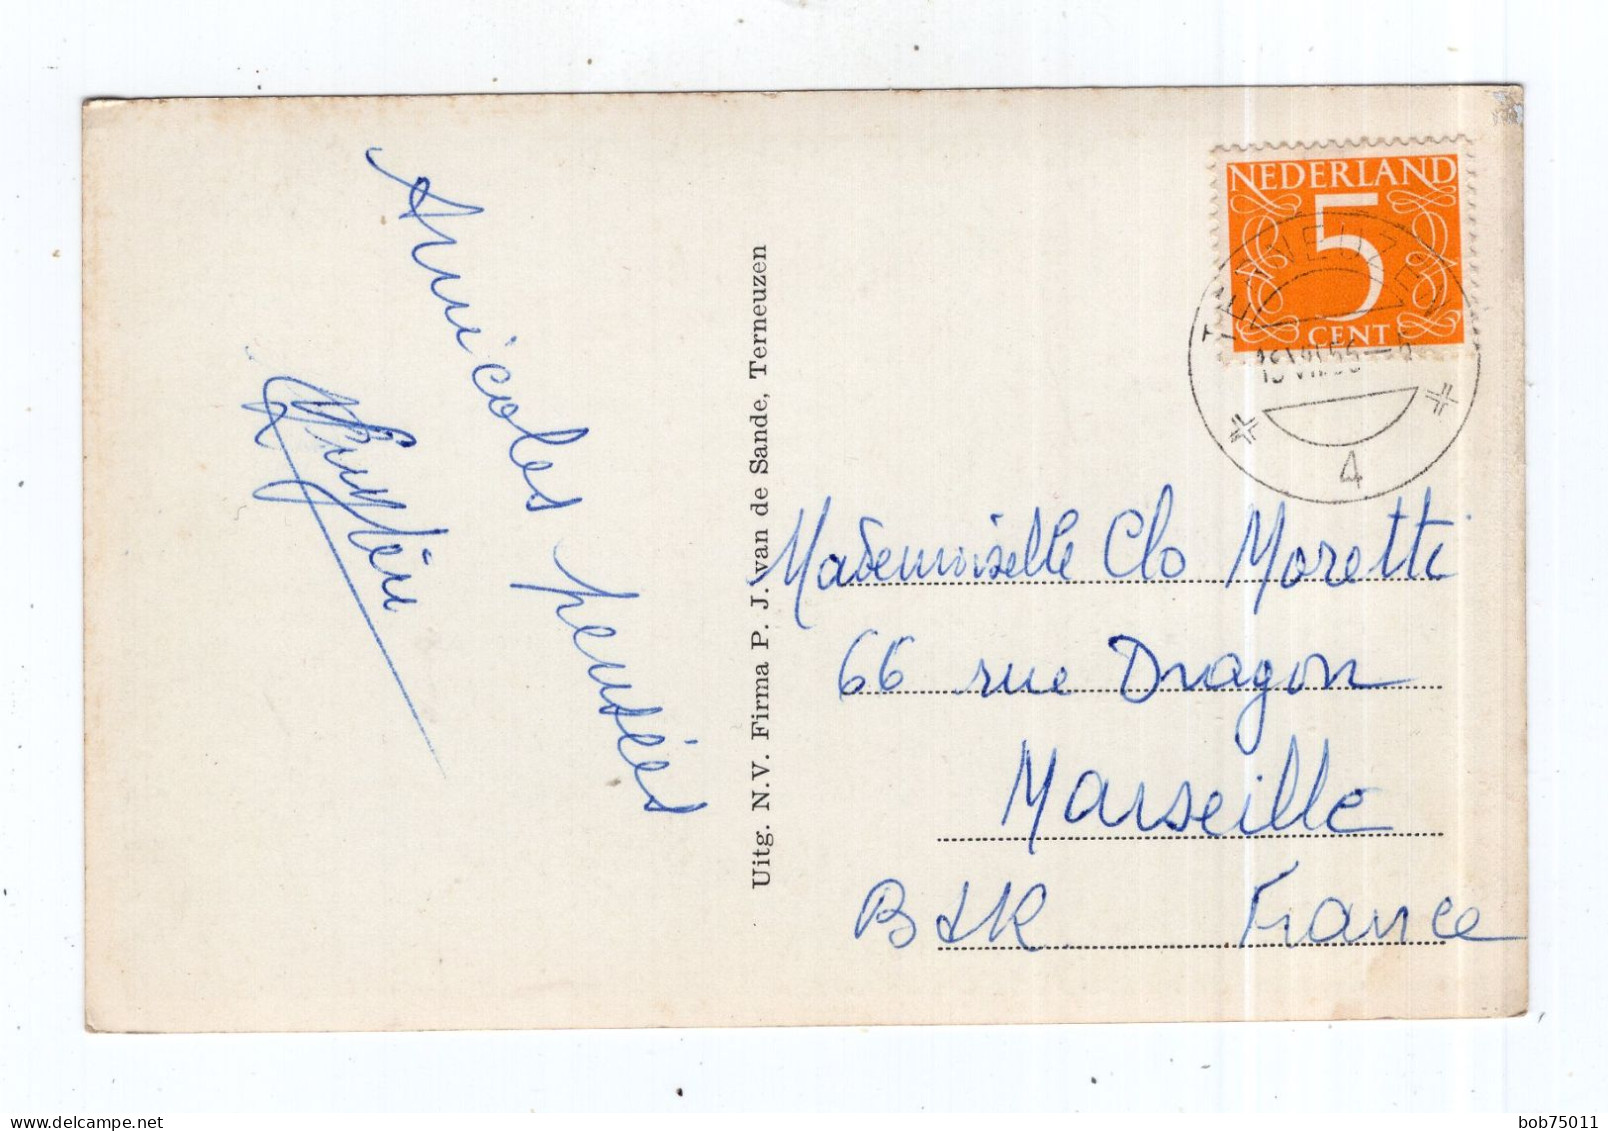 Amicales pensées
Uitg. N.V. Firma P. J. van de Sande, Terneuzen
NEDERLAND
5
CENT
TERNEUZEN
4
Mademoiselle Clo Moretti
66 rue Dragon
Marseille
France
delcampe.net
bob75011